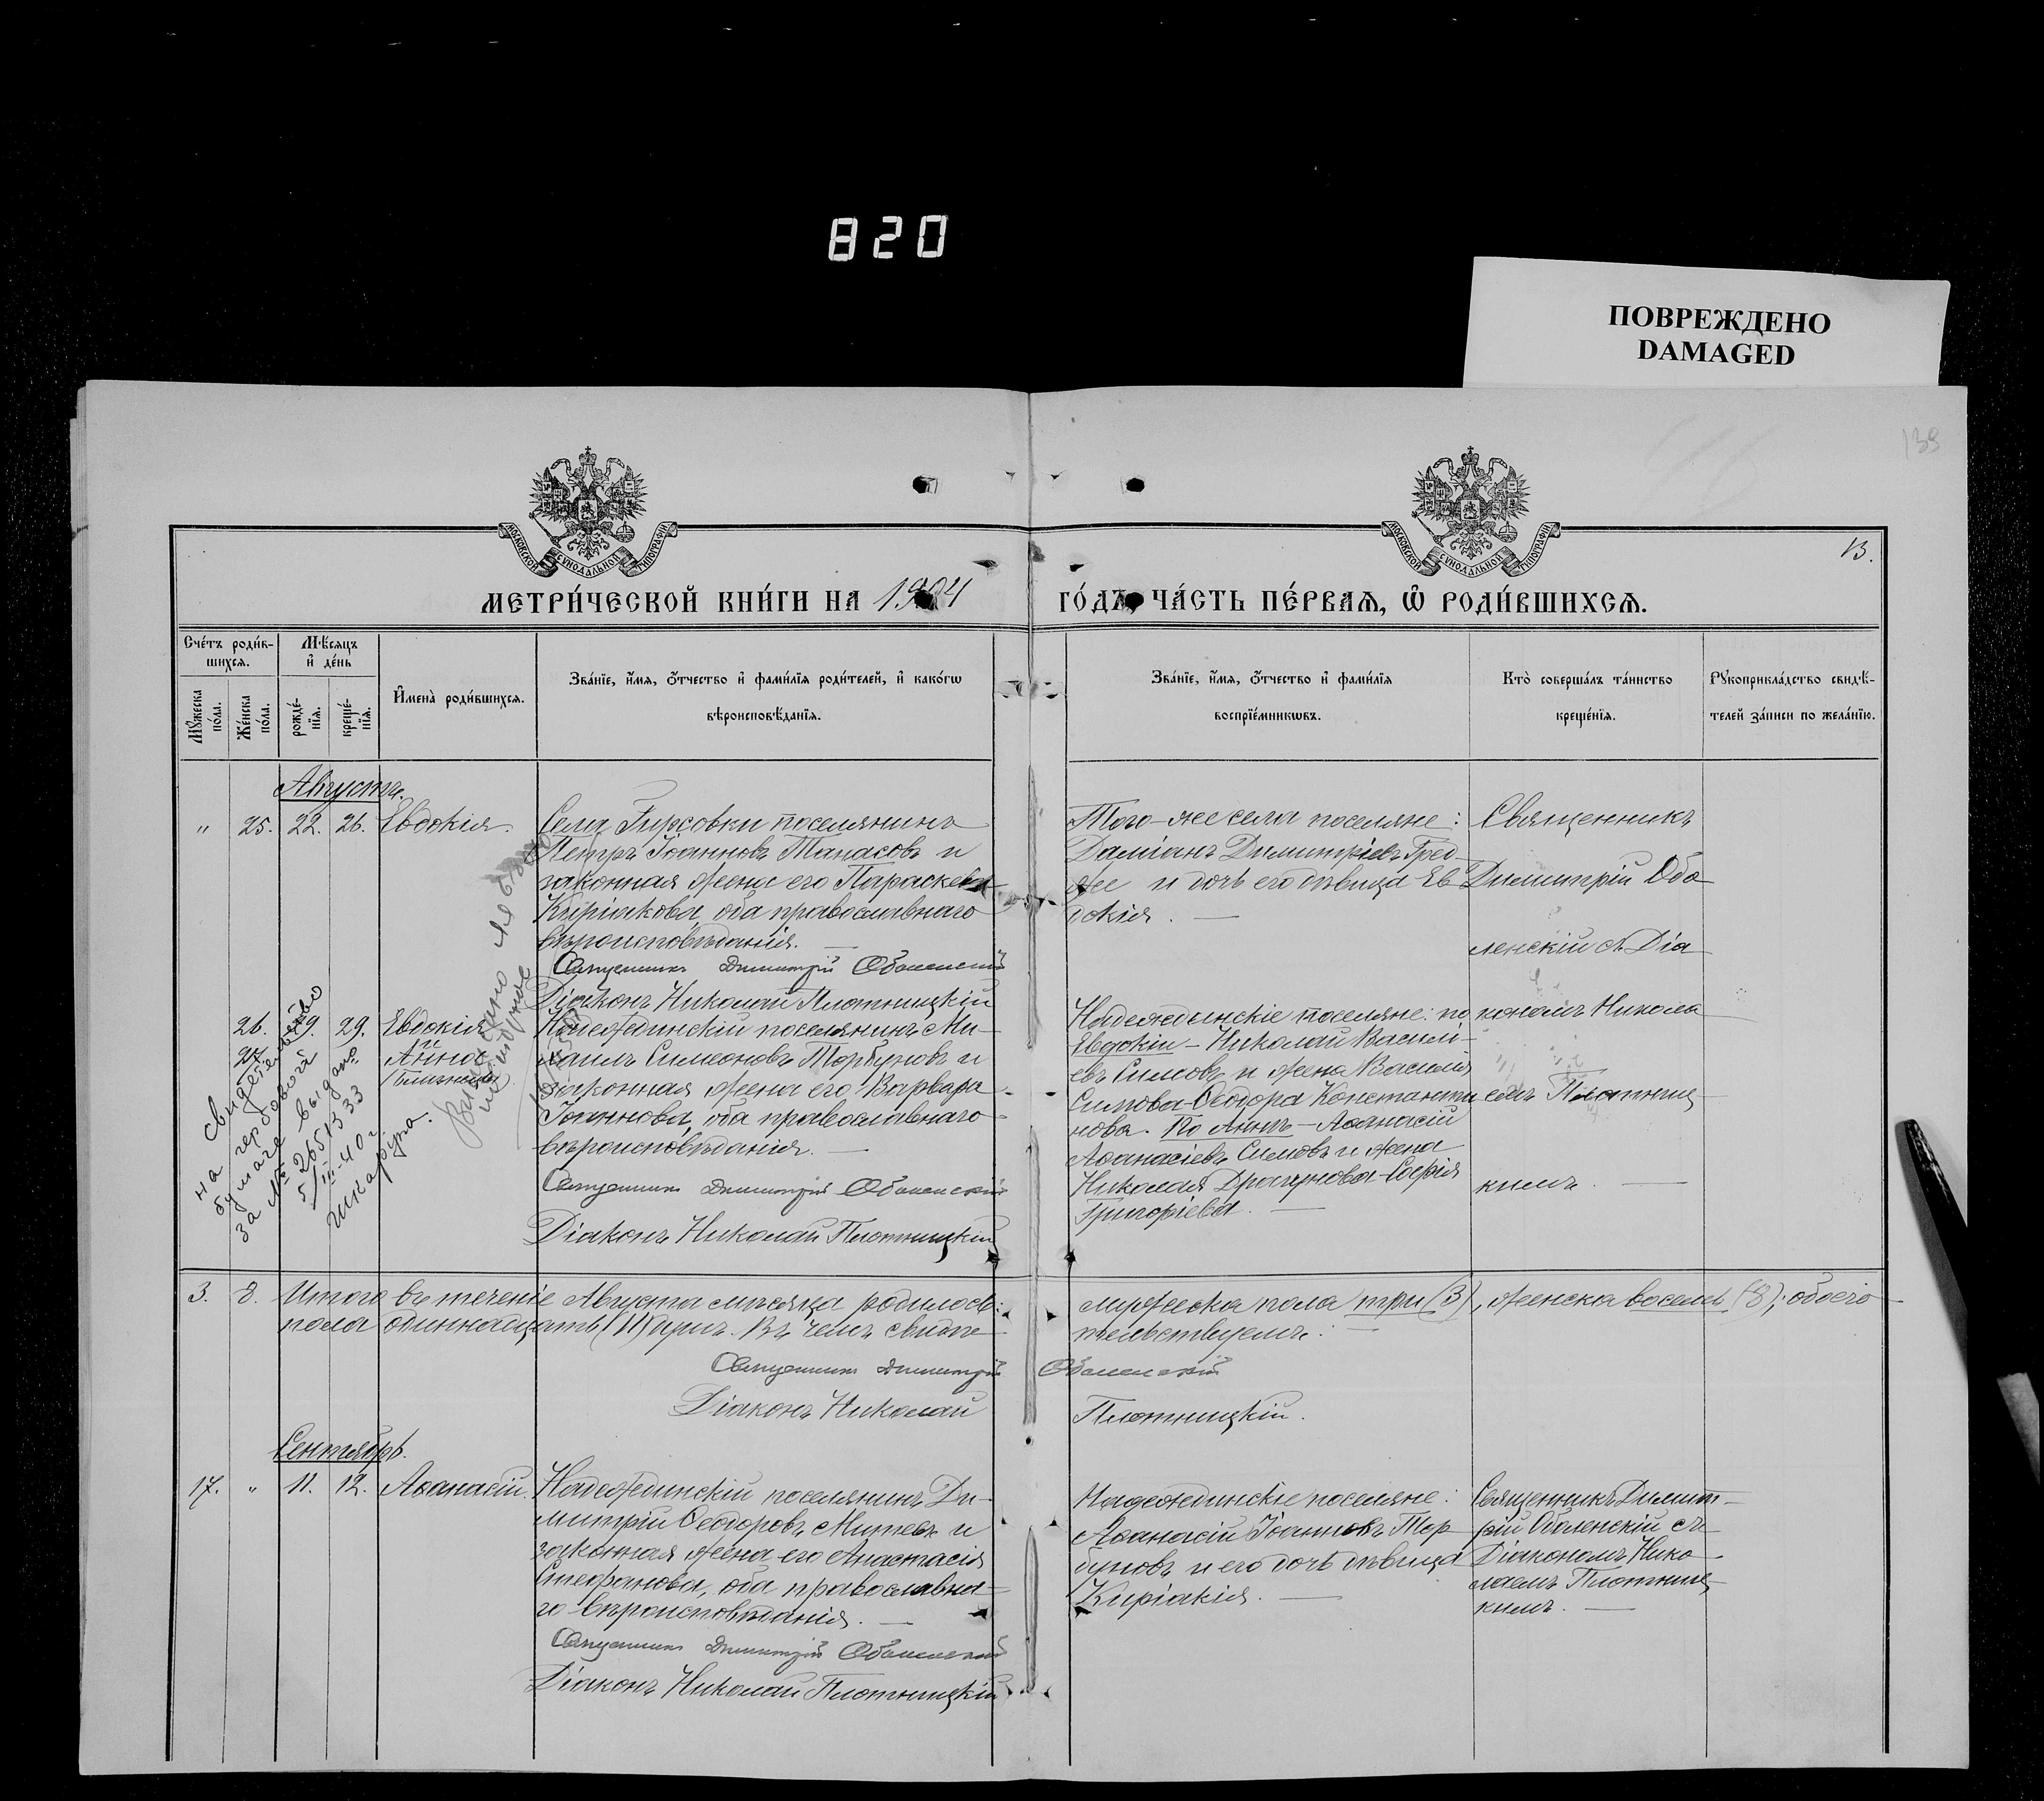 820
ПОВРЕЖДЕНО
DAMAGED
139
13.
МОСКОВСКОЙ СѴНОДАЛЬНОЙ ТИПОГРАФІИ
МОСКОВСКОЙ СѴНОДАЛЬНОЙ ТИПОГРАФІИ
МЕТРИ́ЧЕСКОЙ КНИ́ГИ НА 1904 ГО́ДЪ, ЧА́СТЬ ПЕ́РВАЯ, Ѡ РОДИ́ВШИХСЯ.
Сче́тъ роди́в-
шихся.
Мѣ́сяцъ
и де́нь
Мꙋ́жеска
по́ла.
Же́нска
по́ла.
рожде́-
нїя.
креще́-
нїя.
Имена̀ роди́вшихся.
Зва́нїе, и́мя, ѻ́тчество и фами́лїя роди́телей, и како́гѡ
вѣроисповѣ́данїя.
Зва́нїе, и́мя, ѻ́тчество и фами́лїя
воспрїе́мникѡвъ.
Кто̀ соверша́лъ та́инство
креще́нїя.
Рꙋкоприкла́дство свидѣ́-
телей за́писи по жела́нїю.
Августъ.
" 25. 22. 26. Евдокія.
Села Гирсовки поселянинъ
Петръ Іоанновъ Танасовъ и
законная жена его Параскева
Киріакова, оба православнаго
вѣроисповѣданія.
Священникъ Димитрій Оболенскій
Діаконъ Николай Плотницкій
Того-же села поселяне:
Даміанъ Димитріевъ
и дочь его дѣвица Ев
докія.
Священникъ
Димитрій Обо
ленскій съ Діа
кономъ Никола
емъ Плотниц
кимъ.
26. 29. 29. Евдокія
27. и Анна
близнецы.
Надеждинскій поселянинъ Ми-
хаилъ Симеоновъ Торбуновъ и
законная жена его Варвара
Іоаннова, оба православнаго
вѣроисповѣданія.
Священникъ Димитрій Оболенскій
Діаконъ Николай Плотницкій
Надеждинскіе поселяне: по
Евдокіи - Николай Василі-
евъ Симовъ и жена Василія
Симова - Ѳеодора Константи
нова. По Аннѣ - Аѳанасій
Аѳанасіевъ Симовъ и жена
Николая Драгунова - Софія
Григоріева.
свидетельство
на гербовой
бумаге выдано
за № 2651533
5/III-40 г.
3. 8. Итого въ теченіе Августа мѣсяца родилось: мужеска пола три (3), женска восемь (8); обоего
пола одиннадцать (11) душъ. Въ чемъ свидѣ тельствуемъ:
Священникъ Димитрій Оболенскій
Діаконъ Николай Плотницкій.
Сентябрь.
17. " 11. 12. Аѳанасій.
Надеждинскій поселянинъ Ди-
митрій Ѳеодоровъ Митевъ и
законная жена его Анастасія
Стефанова, оба православна-
го вѣроисповѣданія.
Священникъ Димитрій Оболенскій
Діаконъ Николай Плотницкій
Надеждинскіе поселяне:
Аѳанасій Іоанновъ Тор
буновъ и его дочь дѣвица
Киріакія.
Священникъ Димит-
рій Оболенскій съ
Діакономъ Нико-
лаемъ Плотниц
кимъ.